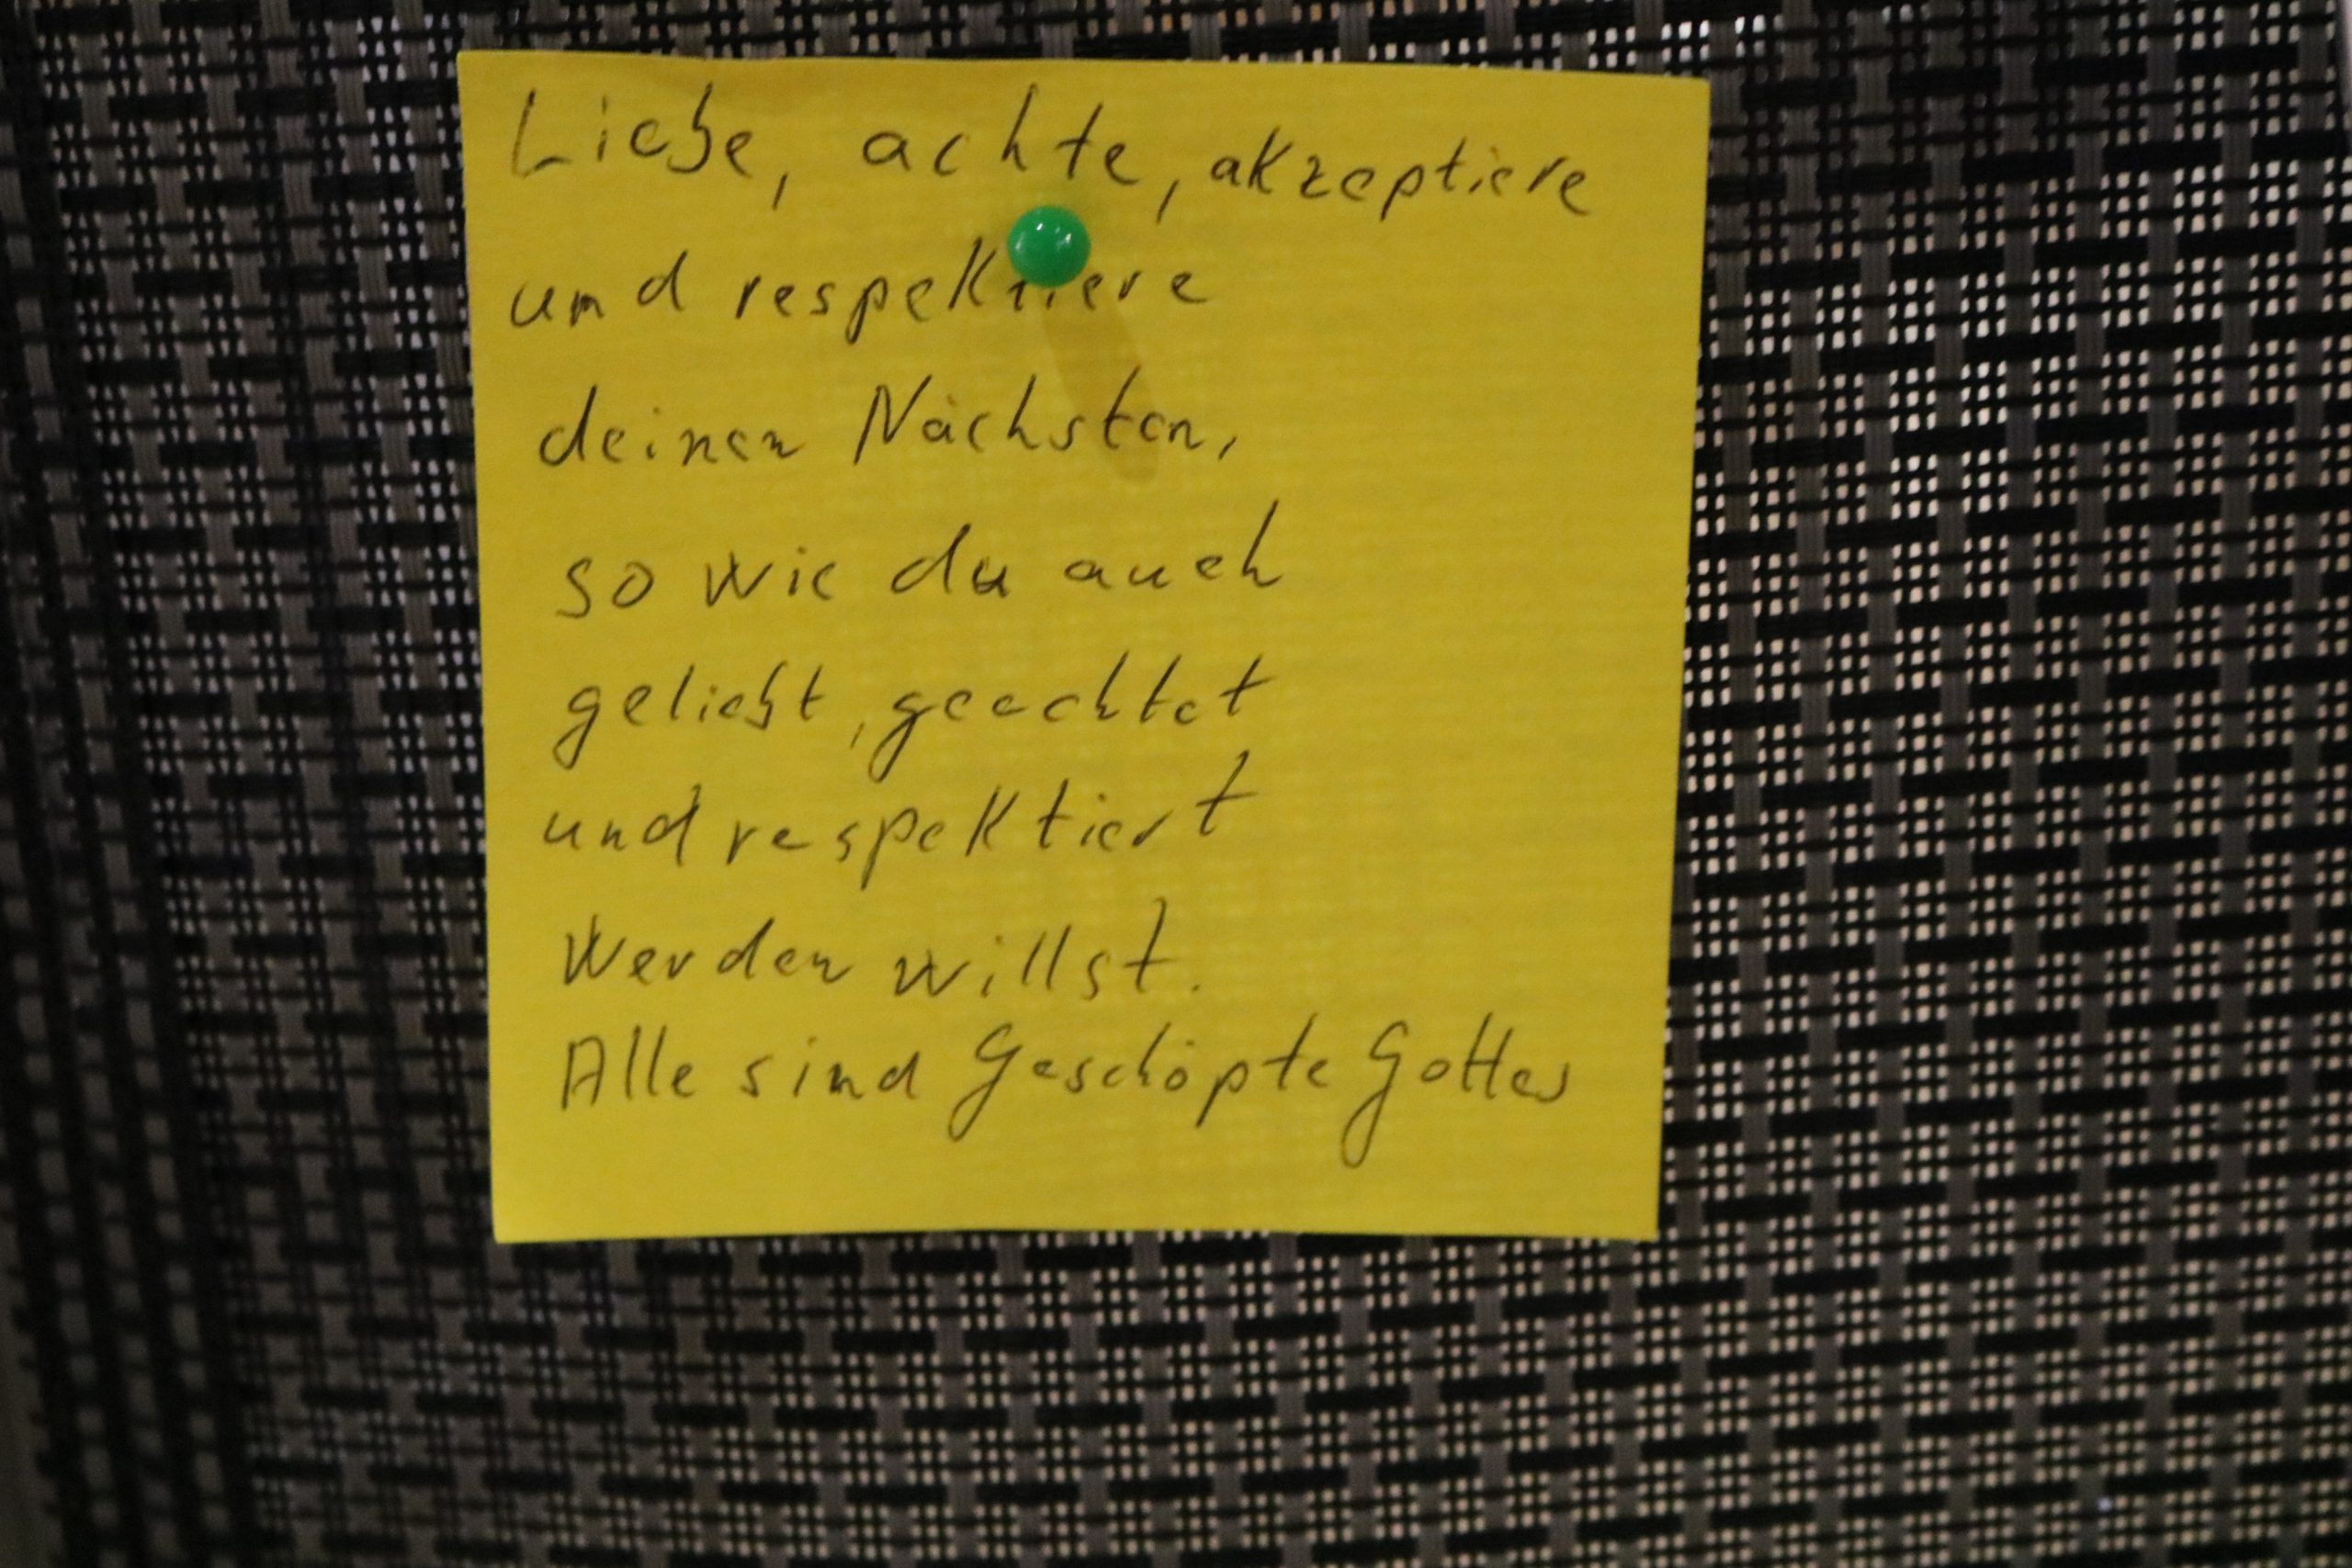 Liebe, achte, akzeptiere
und respektiere
deinen Nächsten,
so wie du auch
geliebt, geachtet
und respektiert
werden willst.
Alle sind Geschöpfe Gottes